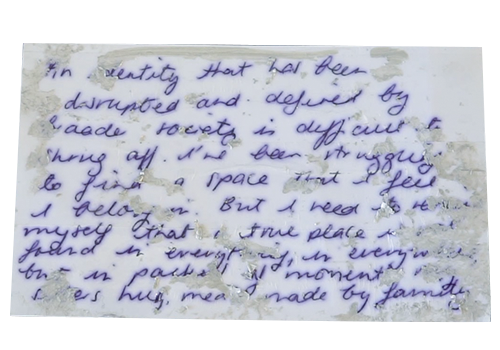 An identity that has been
disrupted and defined by
society is difficult to
shrug off. I've been struggling
to find a space that I feel
I belong in. But I need to
myself that a true place is
found in everything, in everywhere
but in moment
hug, meal made by family